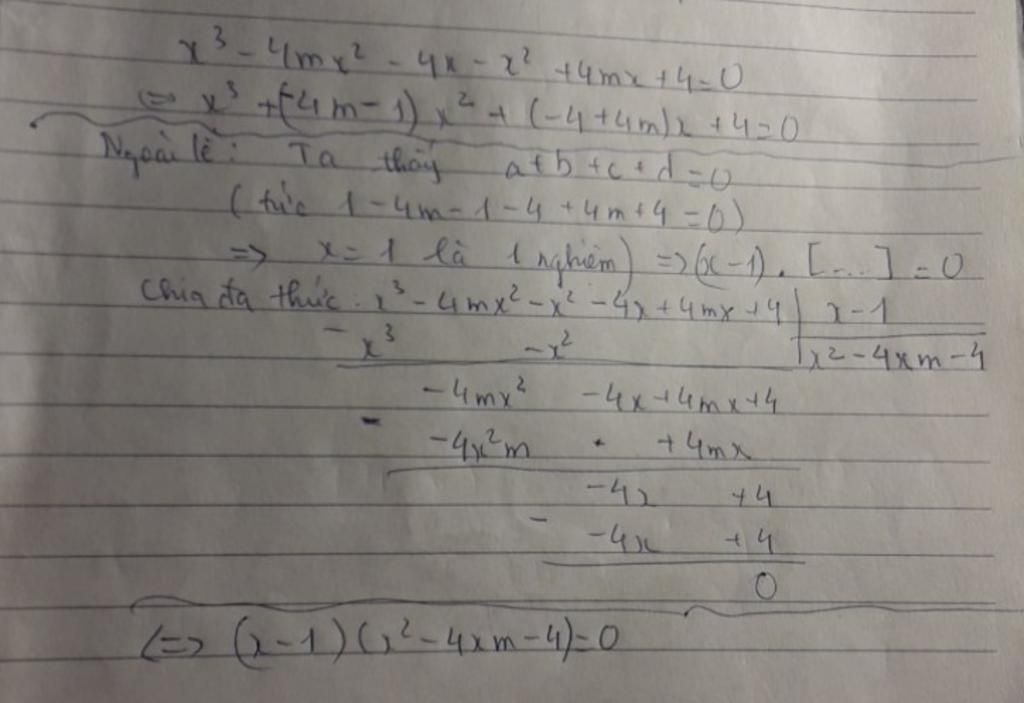 x³ - 4mx² - 4x - x² + 4mx + 4 = 0
<=> x³ + (-4m - 1) x² + (-4 + 4m)x + 4 = 0
Ngoài lề: Ta thấy a + b + c + d = 0
(tức 1 - 4m - 1 - 4 + 4m + 4 = 0)
=> x = 1 là 1 nghiệm) => (x - 1) . [....] = 0
Chia đa thức: x³ - 4mx² - x² - 4x + 4mx + 4 | x - 1
- x³ - x² | x² - 4xm - 4
- 4mx² - 4x + 4mx + 4
- - 4x²m . + 4mx
- 4x + 4
- - 4x + 4
0
<=> (x - 1)(x² - 4xm - 4) = 0